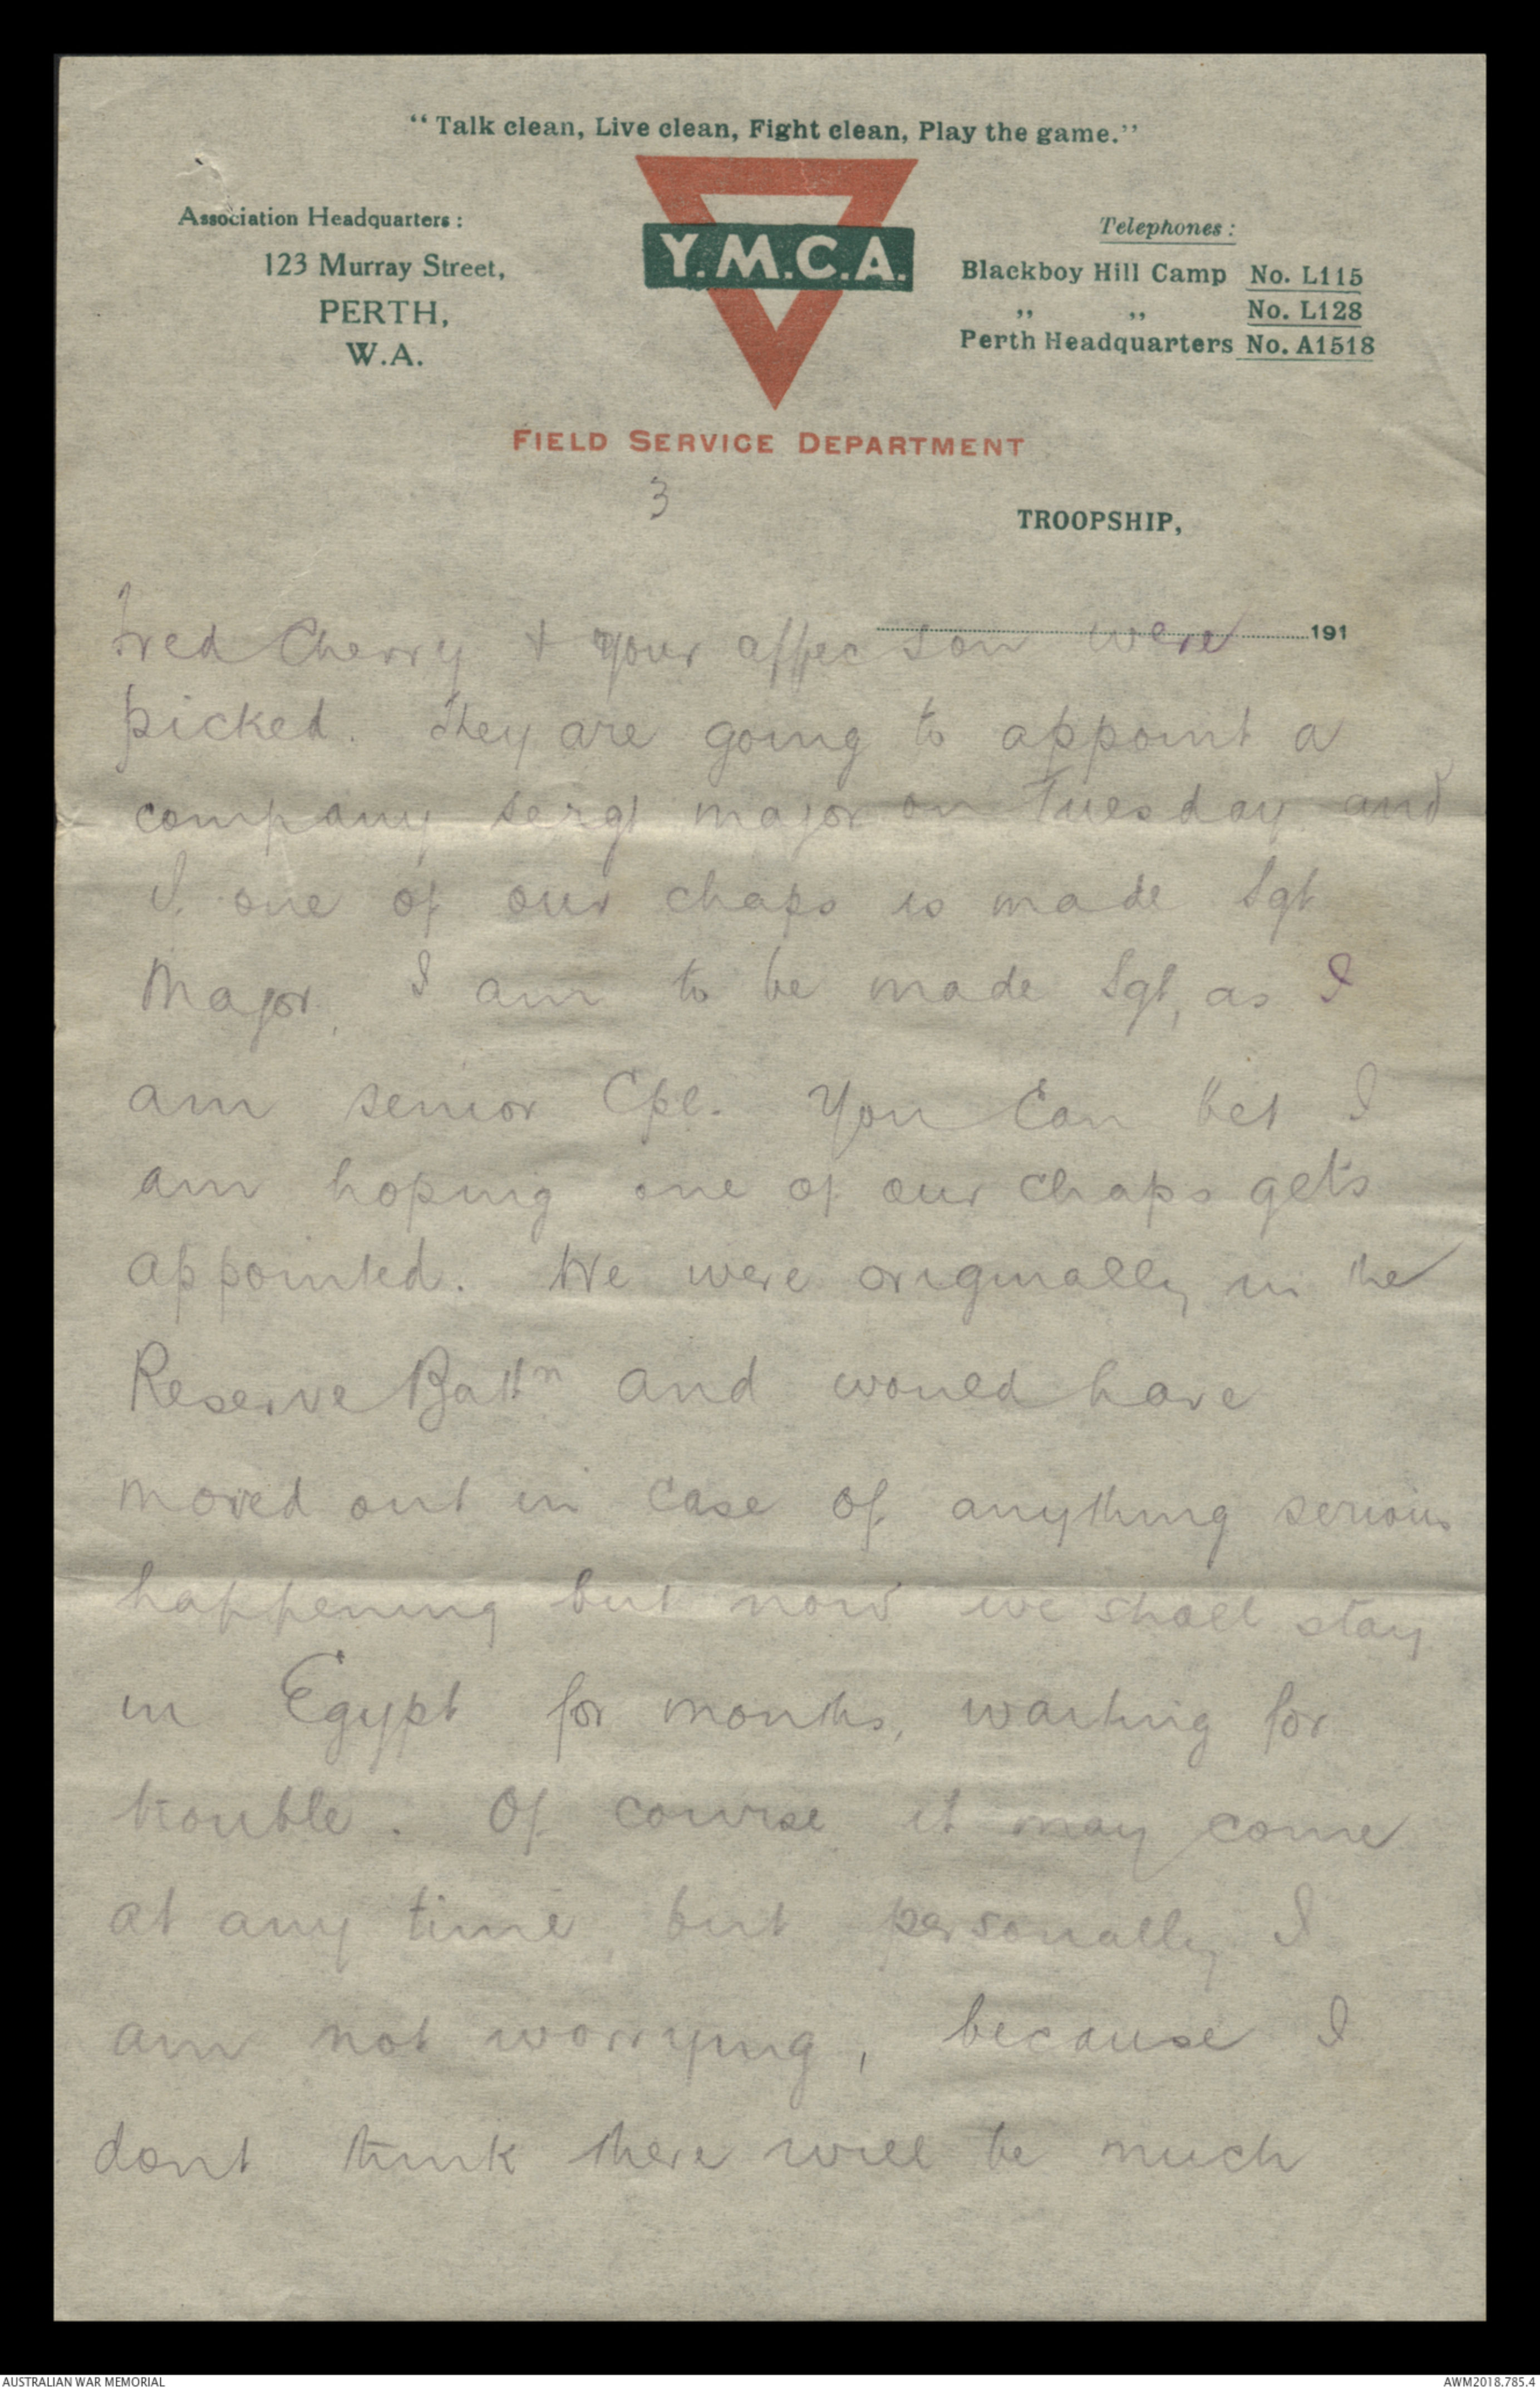 "Talk clean, Live clean, Fight clean, Play the game."
Association Headquarters:
123 Murray Street,
PERTH,
W.A.
Y.M.C.A.
Telephones:
Blackboy Hill Camp No. L115
" " No. L128
Perth Headquarters No. A1518
FIELD SERVICE DEPARTMENT
3
TROOPSHIP,
191
Fred Cherry & your affec son were
picked. They are going to appoint a
company sergt major on Tuesday and
if one of our chaps is made Sgt
Major, I am to be made Sgt, as I
am senior Cpl. You can bet I
am hoping one of our chaps gets
appointed. We were originally in the
Reserve Battn and would have
moved out in case of anything serious
happening but now we shall stay
in Egypt for months, waiting for
trouble. Of course it may come
at any time but personally I
am not worrying, because I
dont think there will be much
AUSTRALIAN WAR MEMORIAL
AWM2018.785.4